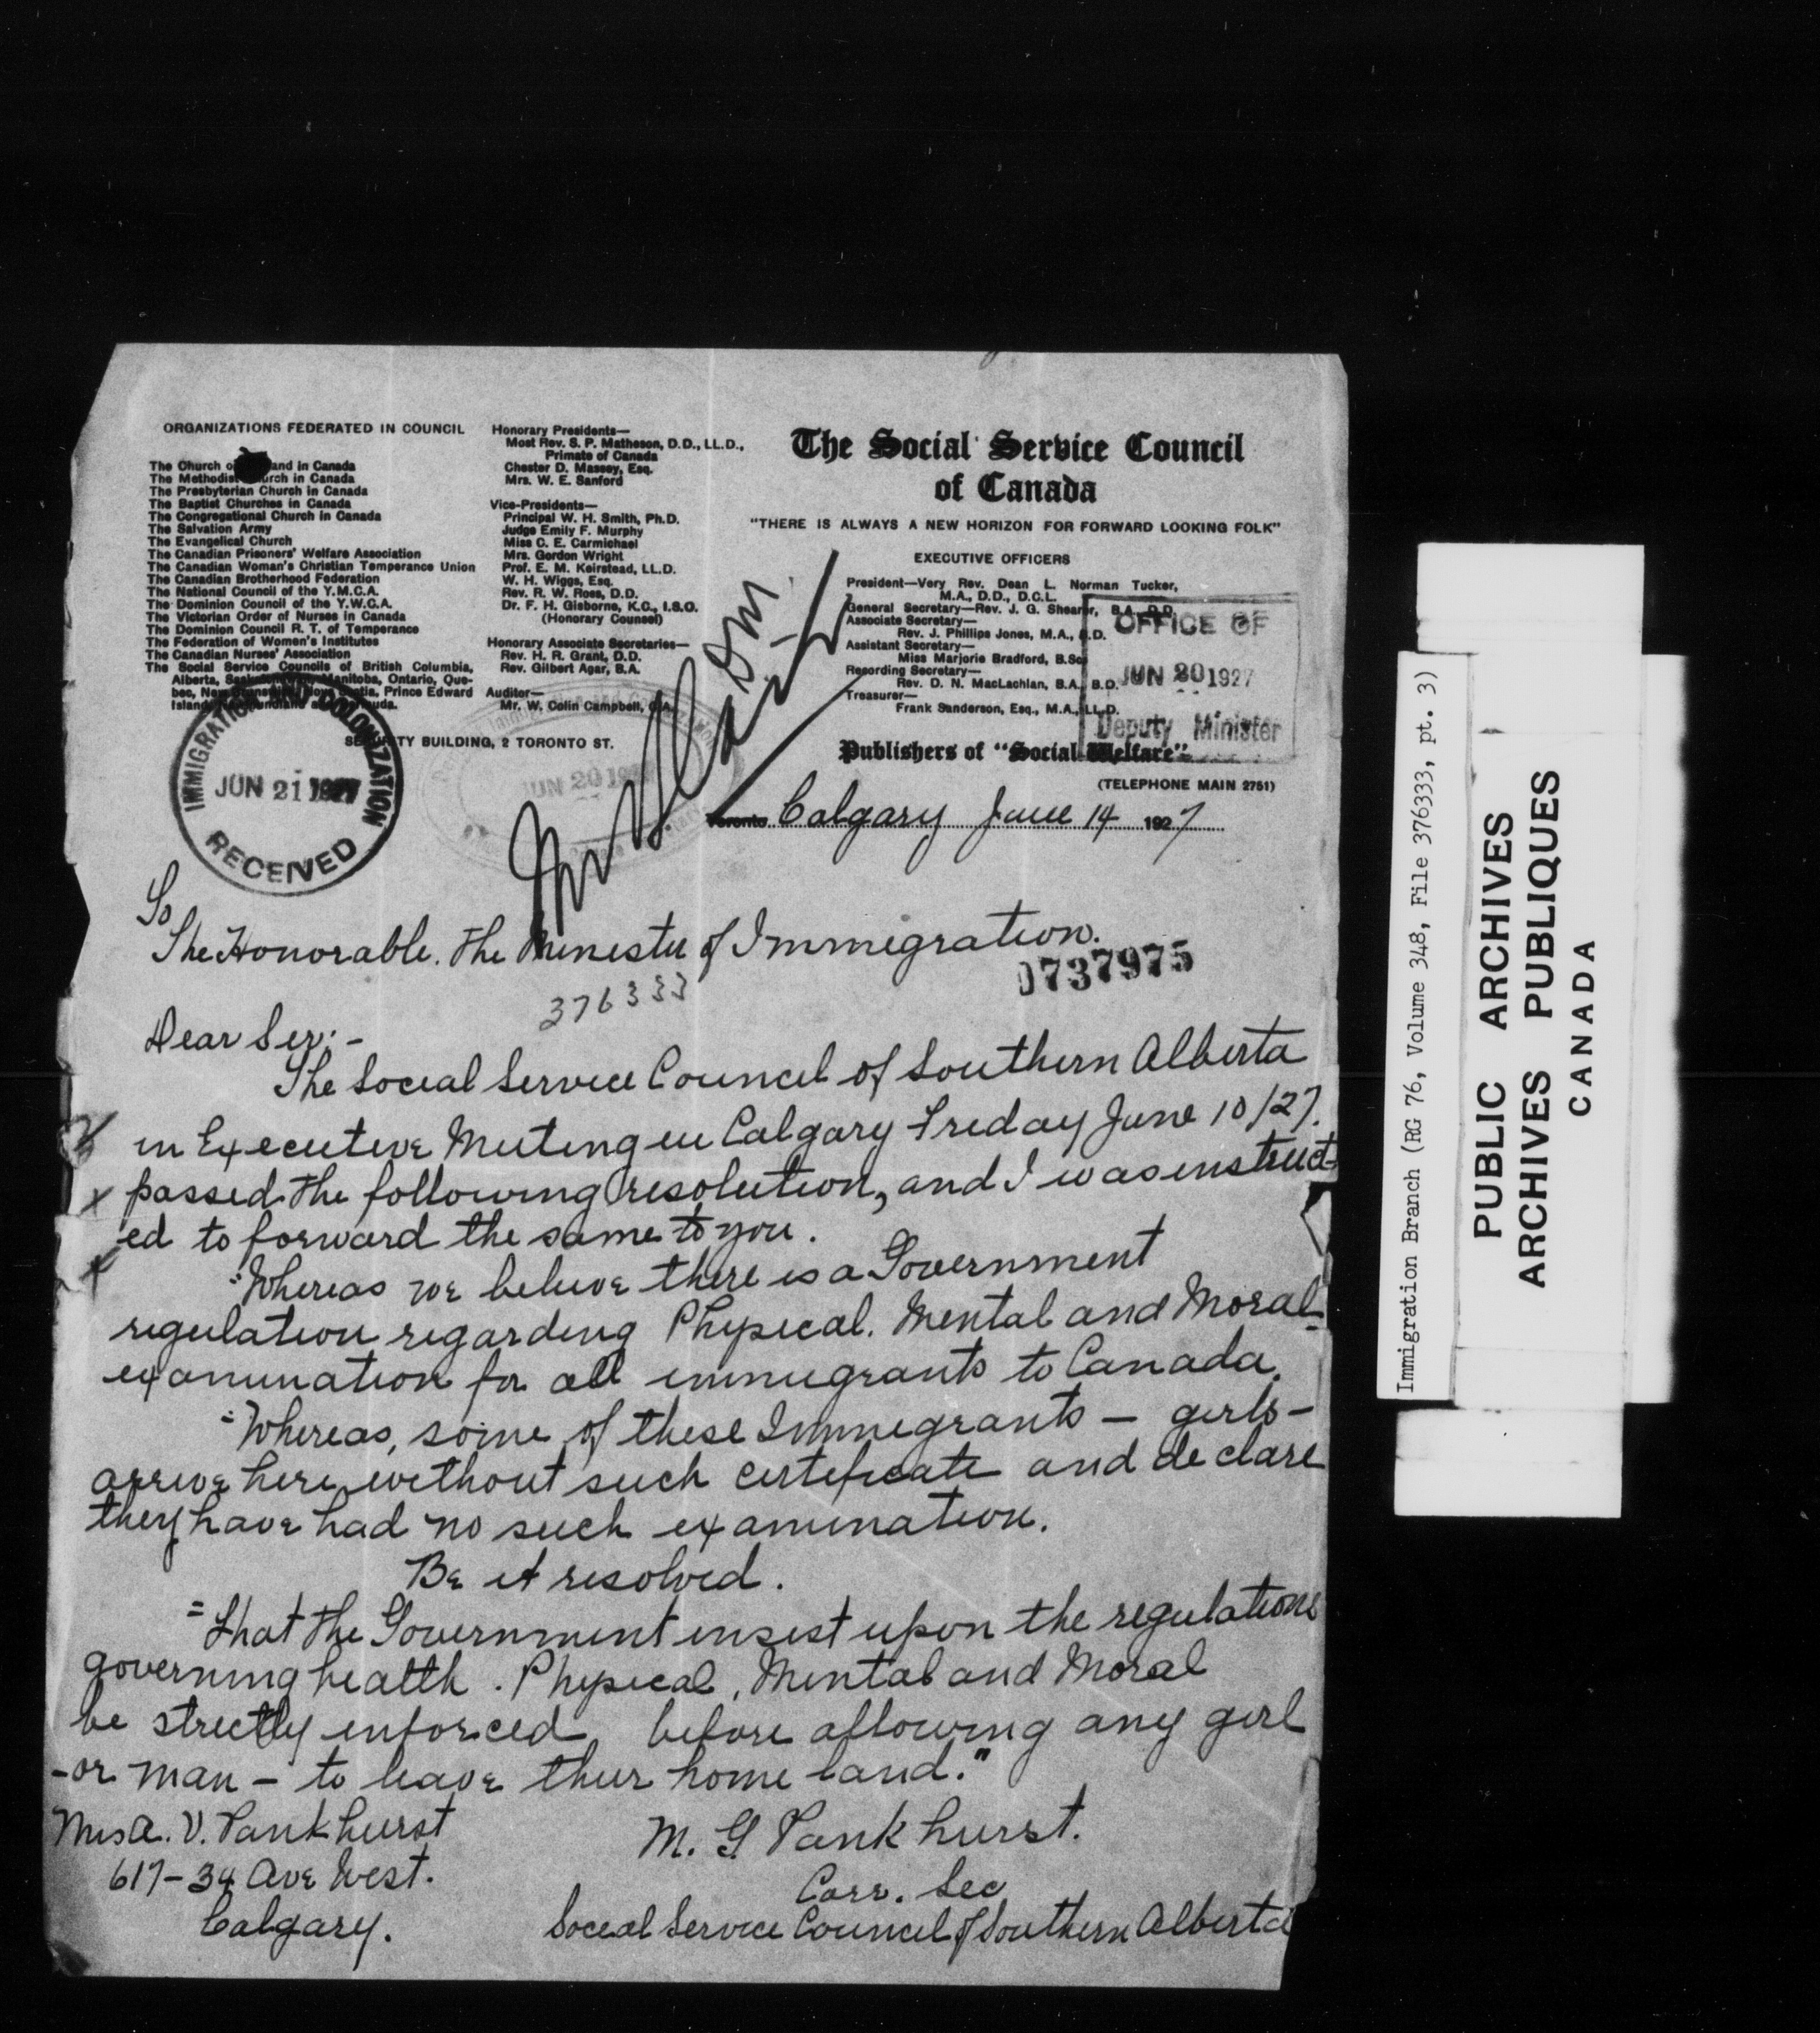 ORGANIZATIONS FEDERATED IN COUNCIL
The Church o and in Canada
The Methodist urch in Canada
The Presbyterian Church in Canada
The Baptist Churches in Canada
The Congregational Church in Canada
The Salvation Army
The Evangelical Church
The Canadian Prisoners' Welfare Association
The Canadian Woman's Christian Temperance Union
The Canadian Brotherhood Federation
The National Council of the Y.M.C.A.
The Dominion Council of the Y.W.C.A.
The Victorian Order of Nurses in Canada
The Dominion Council R. T. of Temperance
The Federation of Women's Institutes
The Canadian Nurses' Association
The Social Service Councils of British Columbia,
Alberta, Manitoba, Ontario, Que-
bec, New Nova Scotia, Prince Edward
Island
Honorary Presidents—
Most Rev. S. P. Matheson, D.D., LL.D.,
Primate of Canada
Chester D. Massey, Esq.
Mrs. W. E. Sanford
Vice-Presidents—
Principal W. H. Smith, Ph.D.
Judge Emily F. Murphy
Miss C. E. Carmichael
Mrs. Gordon Wright
Prof. E. M. Keirstead, LL.D.
W. H. Wiggs, Esq.
Rev. R. W. Ross, D.D.
Dr. F. H. Gisborne, K.C., I.S.O.
(Honorary Counsel)
Honorary Associate Secretaries—
Rev. H. R. Grant, D.D.
Rev. Gilbert Agar, B.A.
Auditor—
Mr. W. Colin Campbell, C.A.
The Social Service Council
of Canada
"THERE IS ALWAYS A NEW HORIZON FOR FORWARD LOOKING FOLK"
EXECUTIVE OFFICERS
President—Very Rev. Dean L. Norman Tucker,
M.A., D.D., D.C.L.
General Secretary—Rev. J. G. Shearer, B.A., D.D.
Associate Secretary—
Rev. J. Phillips Jones, M.A., B.D.
Assistant Secretary—
Miss Marjorie Bradford, B.Sc.
Recording Secretary—
Rev. D. N. MacLachlan, B.A., B.D.
Treasurer—
Frank Sanderson, Esq., M.A., LL.D.
OFFICE OF
JUN 20 1927
Deputy Minister
SECURITY BUILDING, 2 TORONTO ST.
Publishers of "Social Welfare"
(TELEPHONE MAIN 2751)
IMMIGRATION COLONIZATION
JUN 21 1927
RECEIVED
JUN 20 19
Toronto Calgary June 14 1927
To
The Honorable. The Minister of Immigration.
0737975
376333
Dear Sir:-
The Social Service Council of Southern Alberta
in Executive Meeting in Calgary Friday June 10/27.
passed the following resolution, and I was instruct-
ed to forward the same to you.
"Whereas we believe there is a Government
regulation regarding Physical. Mental and Moral
examination for all immigrants to Canada.
"Whereas, some of these Immigrants - girls -
arrive here without such certificate and declare
they have had no such examination.
Be it resolved.
"That the Government insist upon the regulations
governing health. Physical, Mental and Moral
be strictly enforced before allowing any girl
- or man - to leave their home land."
Mrs A. V. Pankhurst
617-34 Ave West.
Calgary.
M. G Pankhurst.
Corr. Sec
Social Service Council of Southern Alberta
Immigration Branch (RG 76, Volume 348, File 376333, pt. 3)
PUBLIC ARCHIVES
ARCHIVES PUBLIQUES
CANADA